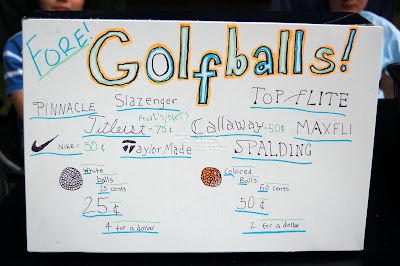 FORE!
Golfballs!
PINNACLE Slazenger TOP FLITE
Titleist = 75¢ Callaway = 50¢ MAXFLI
NIKE = 50¢ Taylor Made SPALDING
White
balls
25 cents
25¢
4 for a dollar
Colored
Balls
50 cents
50¢
2 for a dollar